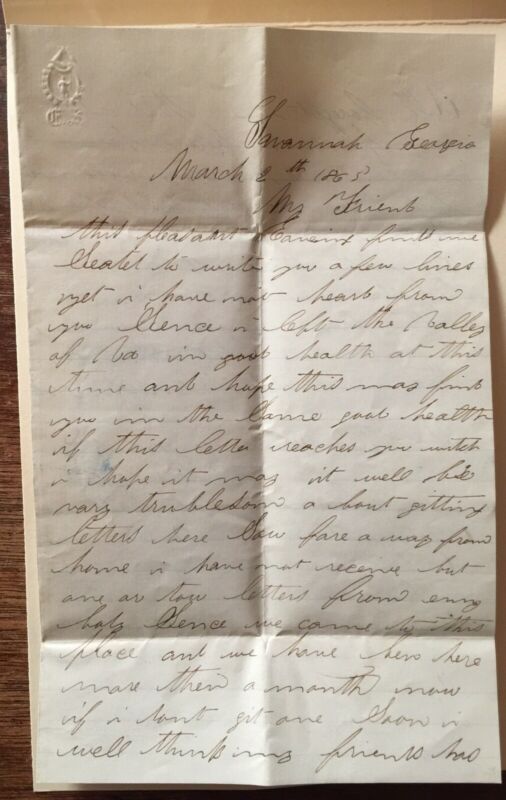 Savannah Georgia
March 2th 1865
My Frient
this pleasant Eaveinx finds me
Seatet to write you a few lines
yet i have not heart from
you Sence i left the Valley
of Va im goot health at this
time ant hope this may fint
you im the Same goot health
if this letter reaches you witch
i hope it may it well be
vary trublesom a bout gitting
letters here Sow fare a way from
home i have not receive but
one or tow letters from enny
boty Sence we come to this
place ant we have ben here
more then a month now
if i tont git one Soon i
well think my frients has